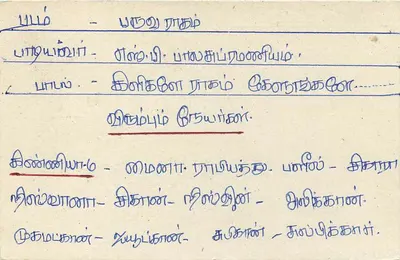 படம் - பருவ ராகம்
பாடியவர் - எஸ்.பி. பாலசுப்ரமணியம்.
பாடல் - கிளிகளே ராகம் கேளுங்களே..........
விரும்பும் நேயர்கள்.
கிண்ணியா-6 - மைனா. ராபியத்து. பளீல் - சிபாறா
நிஸ்வானா - சிகான் - நிஸ்வின் - அலிக்கான்.
முகமட்கான் - - சுபிகான் - சல்பிக்கான்.